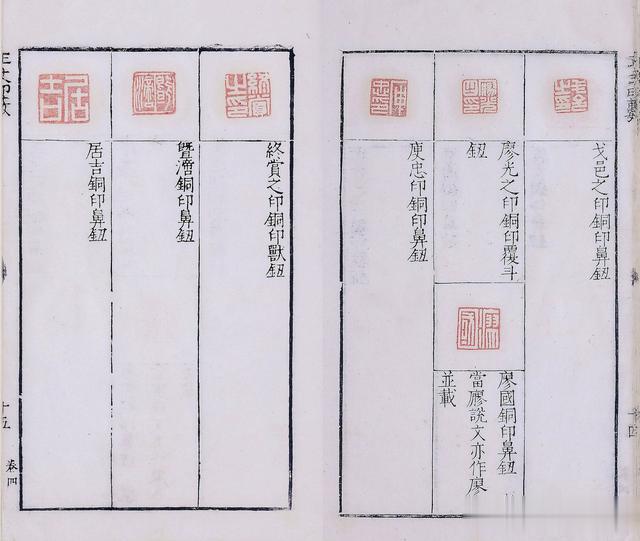 戈邑之印銅印鼻鈕
廖光之印銅印覆斗
鈕
廖國銅印鼻鈕
當廫說文亦作廖
並載
庾忠印銅印鼻鈕
終賞之印銅印獸鈕
暨澘銅印鼻鈕
居吉銅印鼻鈕
居吉
卷四
十五